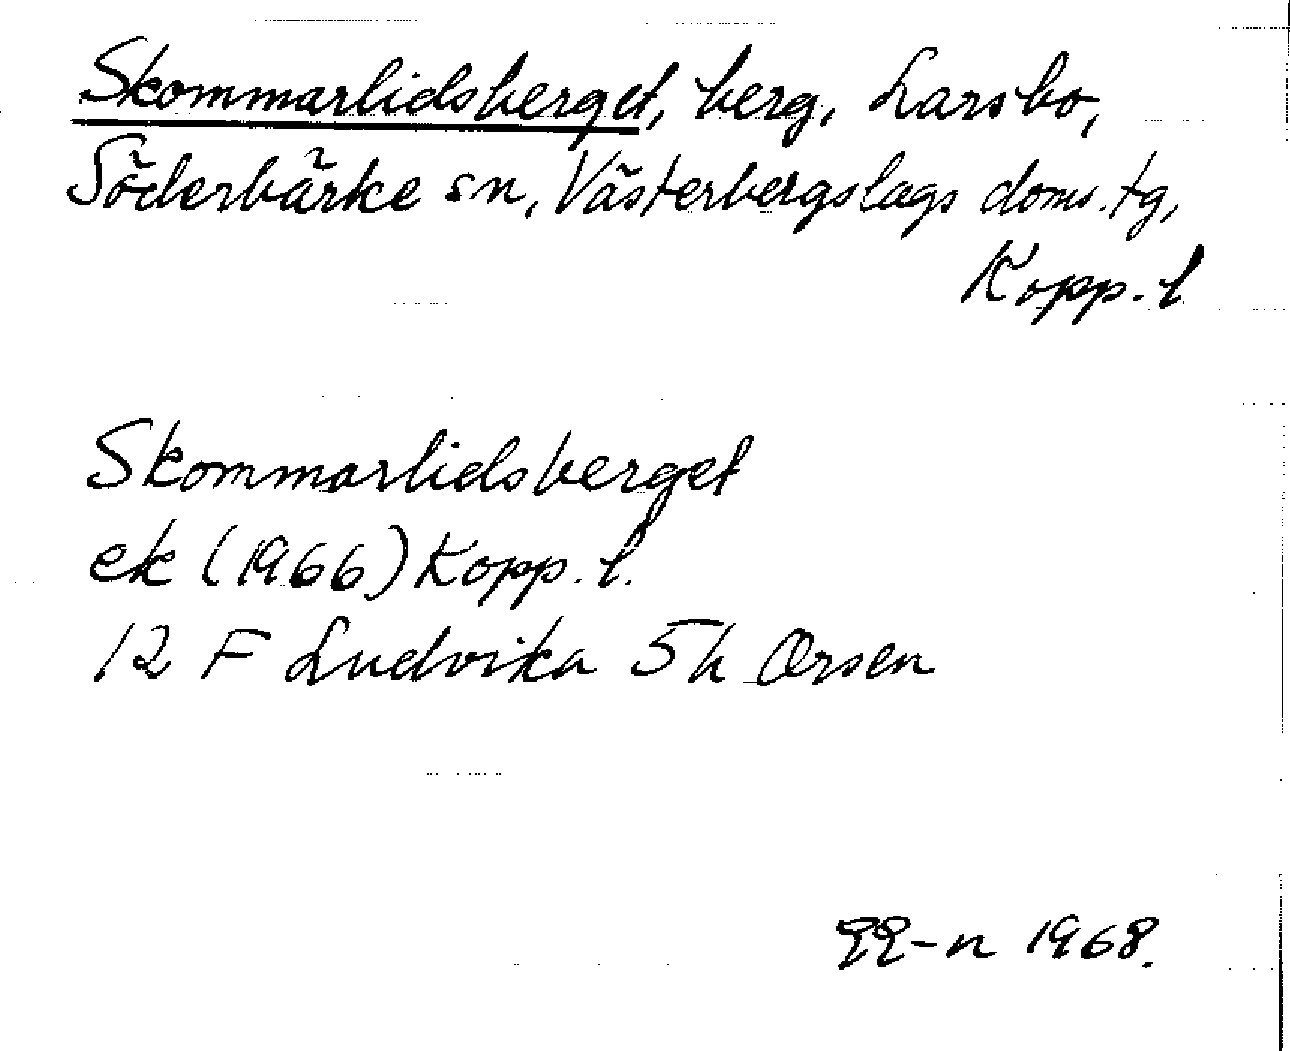 Skommarlidsberget, berg, Larsbo,
Söderbärke sn, Västerbergslags doms.tg,
Kopp. l
Skommarlidsberget
ek (1966) Kopp. l.
12 F Ludvika 5h Orsen
1968.